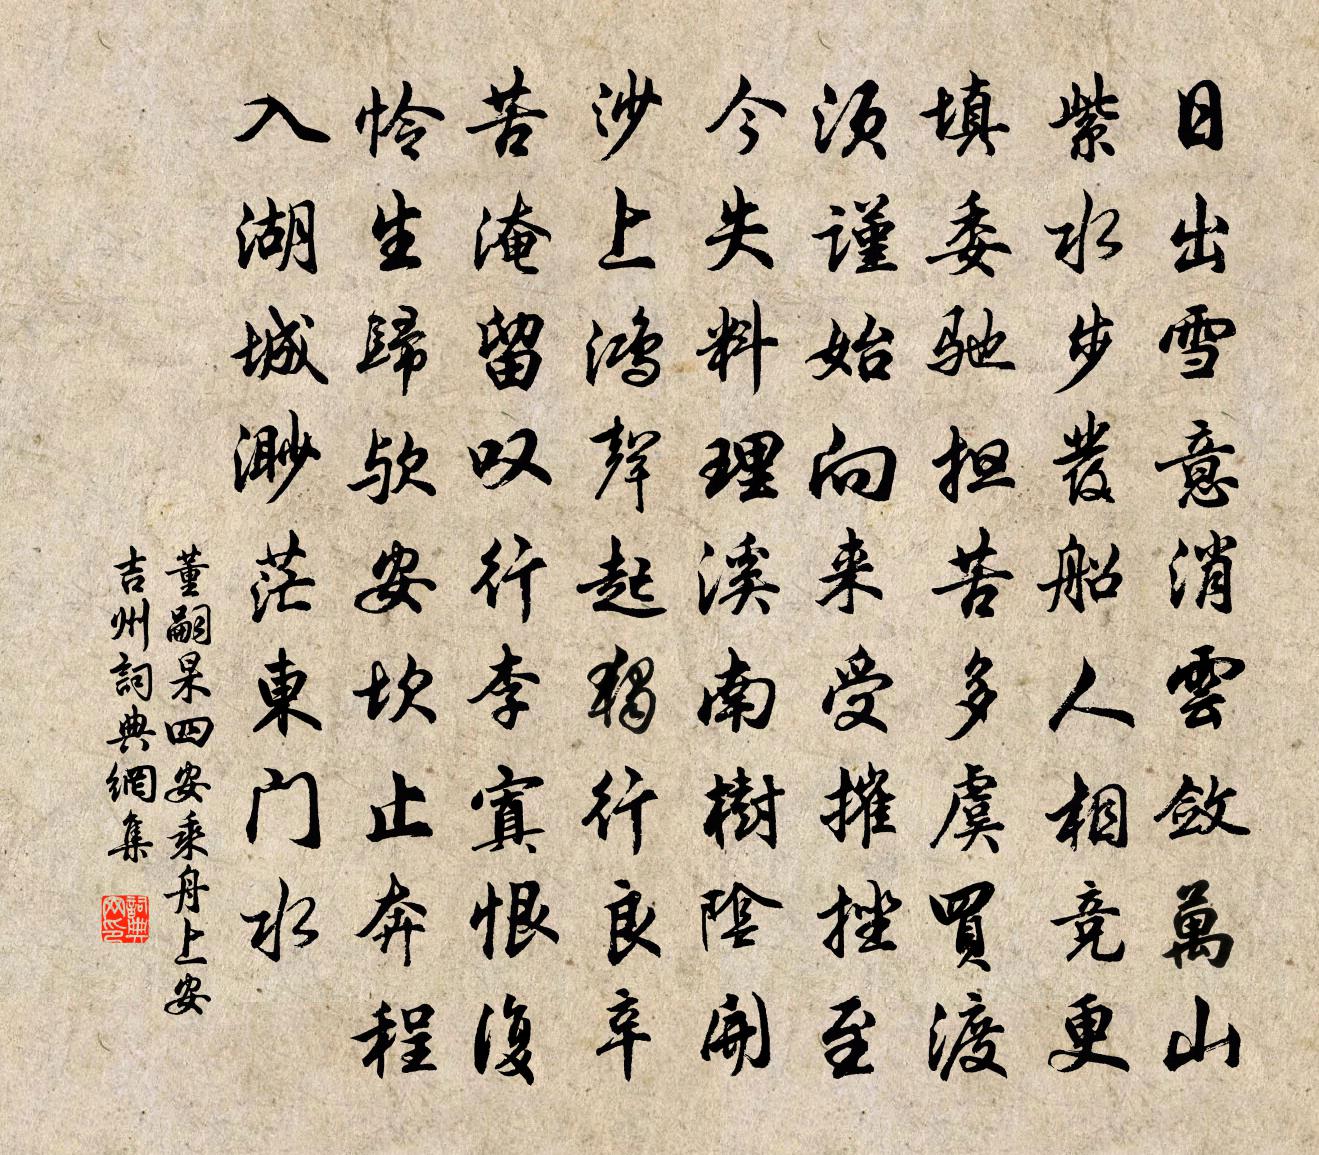 日出雪意消雲斂萬山
紫水步發船人相競更
填委馳担苦多虞買渡
須謹始向来受摧挫至
今失料理溪南樹陰開
沙上鴻聲起獨行良辛
苦淹留叹行李寘恨復
怜生歸欤安坎止奔程
入湖城渺茫東门水
董嗣杲四安乘舟上安
吉州詞典網集
詞典网印